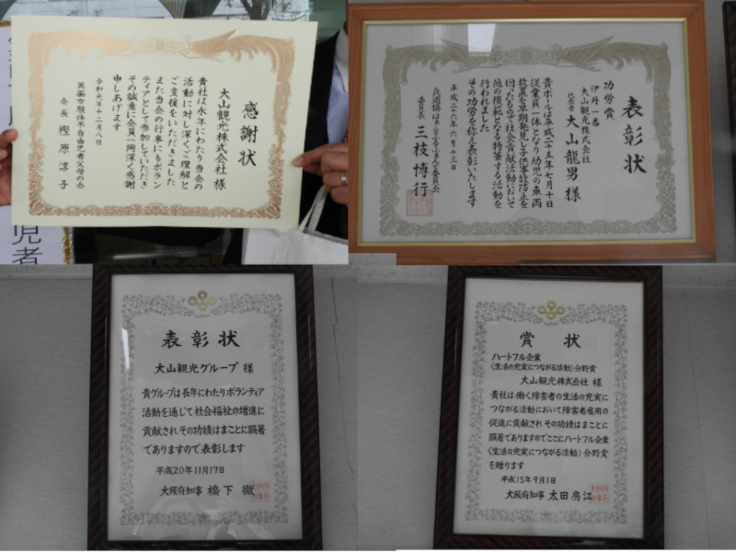 感謝状
大山観光株式会社 様
貴社は永年にわたり当会の
活動に対し深くご理解と
ご支援をいただきました
また当会の行事にもボラン
ティアとして参加していただき
その誠意に会員一同深く感謝
申しあげます
令和元年十二月八日
箕面市肢体不自由児者父母の会
会長 樫原淳子
児者
表彰状
功労賞
伊丹一番
大山観光株式会社
代表者 大山龍男 様
貴ホールは平成二十五年七月十日
従業員一体となり幼児の車両
放置を早期発見し子供事故防止を
図ったもので社会貢献活動において
他の模範となる特筆する活動を
行われました
その功労を称え表彰いたします
平成二十六年六月十三日
委員長 三枝博行
表彰状
大山観光グループ 様
貴グループは長年にわたりボランティア
活動を通じて社会福祉の増進に
貢献されその功績はまことに顕著
でありますので表彰します
平成20年11月17日
大阪府知事 橋下 徹
賞 状
ハートフル企業
(生活の充実につながる活動)分野賞
大山観光株式会社 様
貴社は働く障害者の生活の充実に
つながる活動において障害者雇用の
促進に貢献されその功績はまことに
顕著でありますのでここにハートフル企業
(生活の充実につながる活動)分野賞
を贈ります
平成15年9月1日
大阪府知事 太田房江